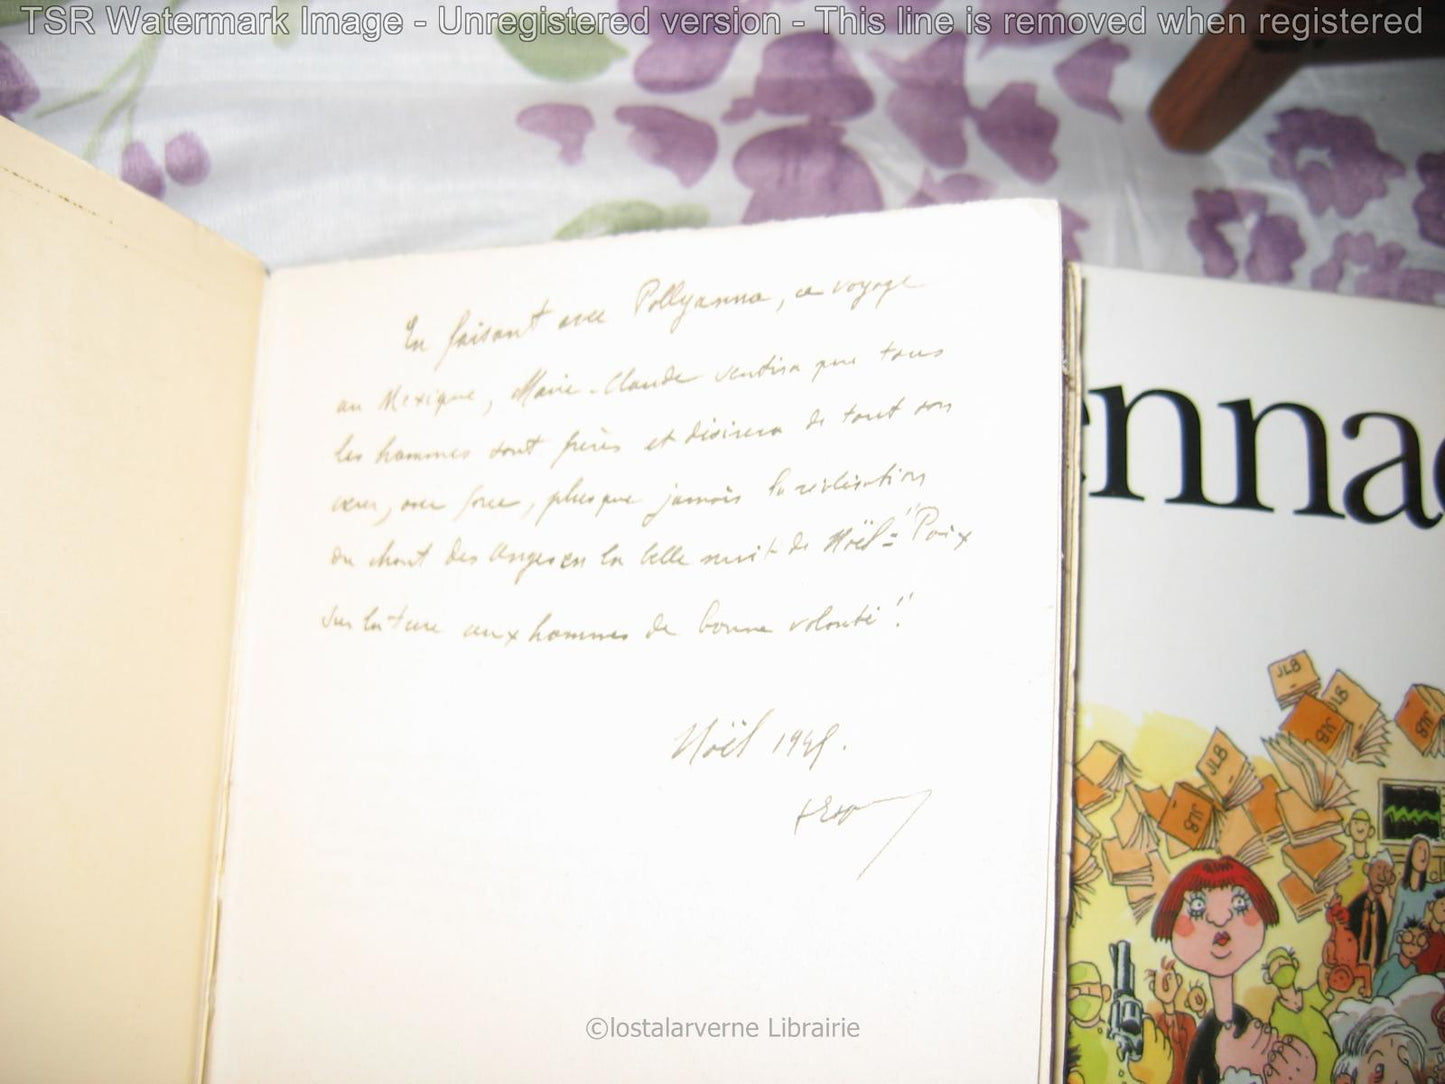 TSR Watermark Image - Unregistered version - This line is removed when registered
En faisant avec Pollyanna, ce voyage
au Mexique, Marie-Claude sentira que tous
les hommes sont frères et désirera de tout son
cœur, avec force, plus que jamais la réalisation
du chant des Anges en la belle nuit de Noël = "Paix
sur la terre aux hommes de bonne volonté"!
Noël 194
ennac
JLB
JLB
JLB
JLB
JLB
JLB
©lostalarverne Librairie